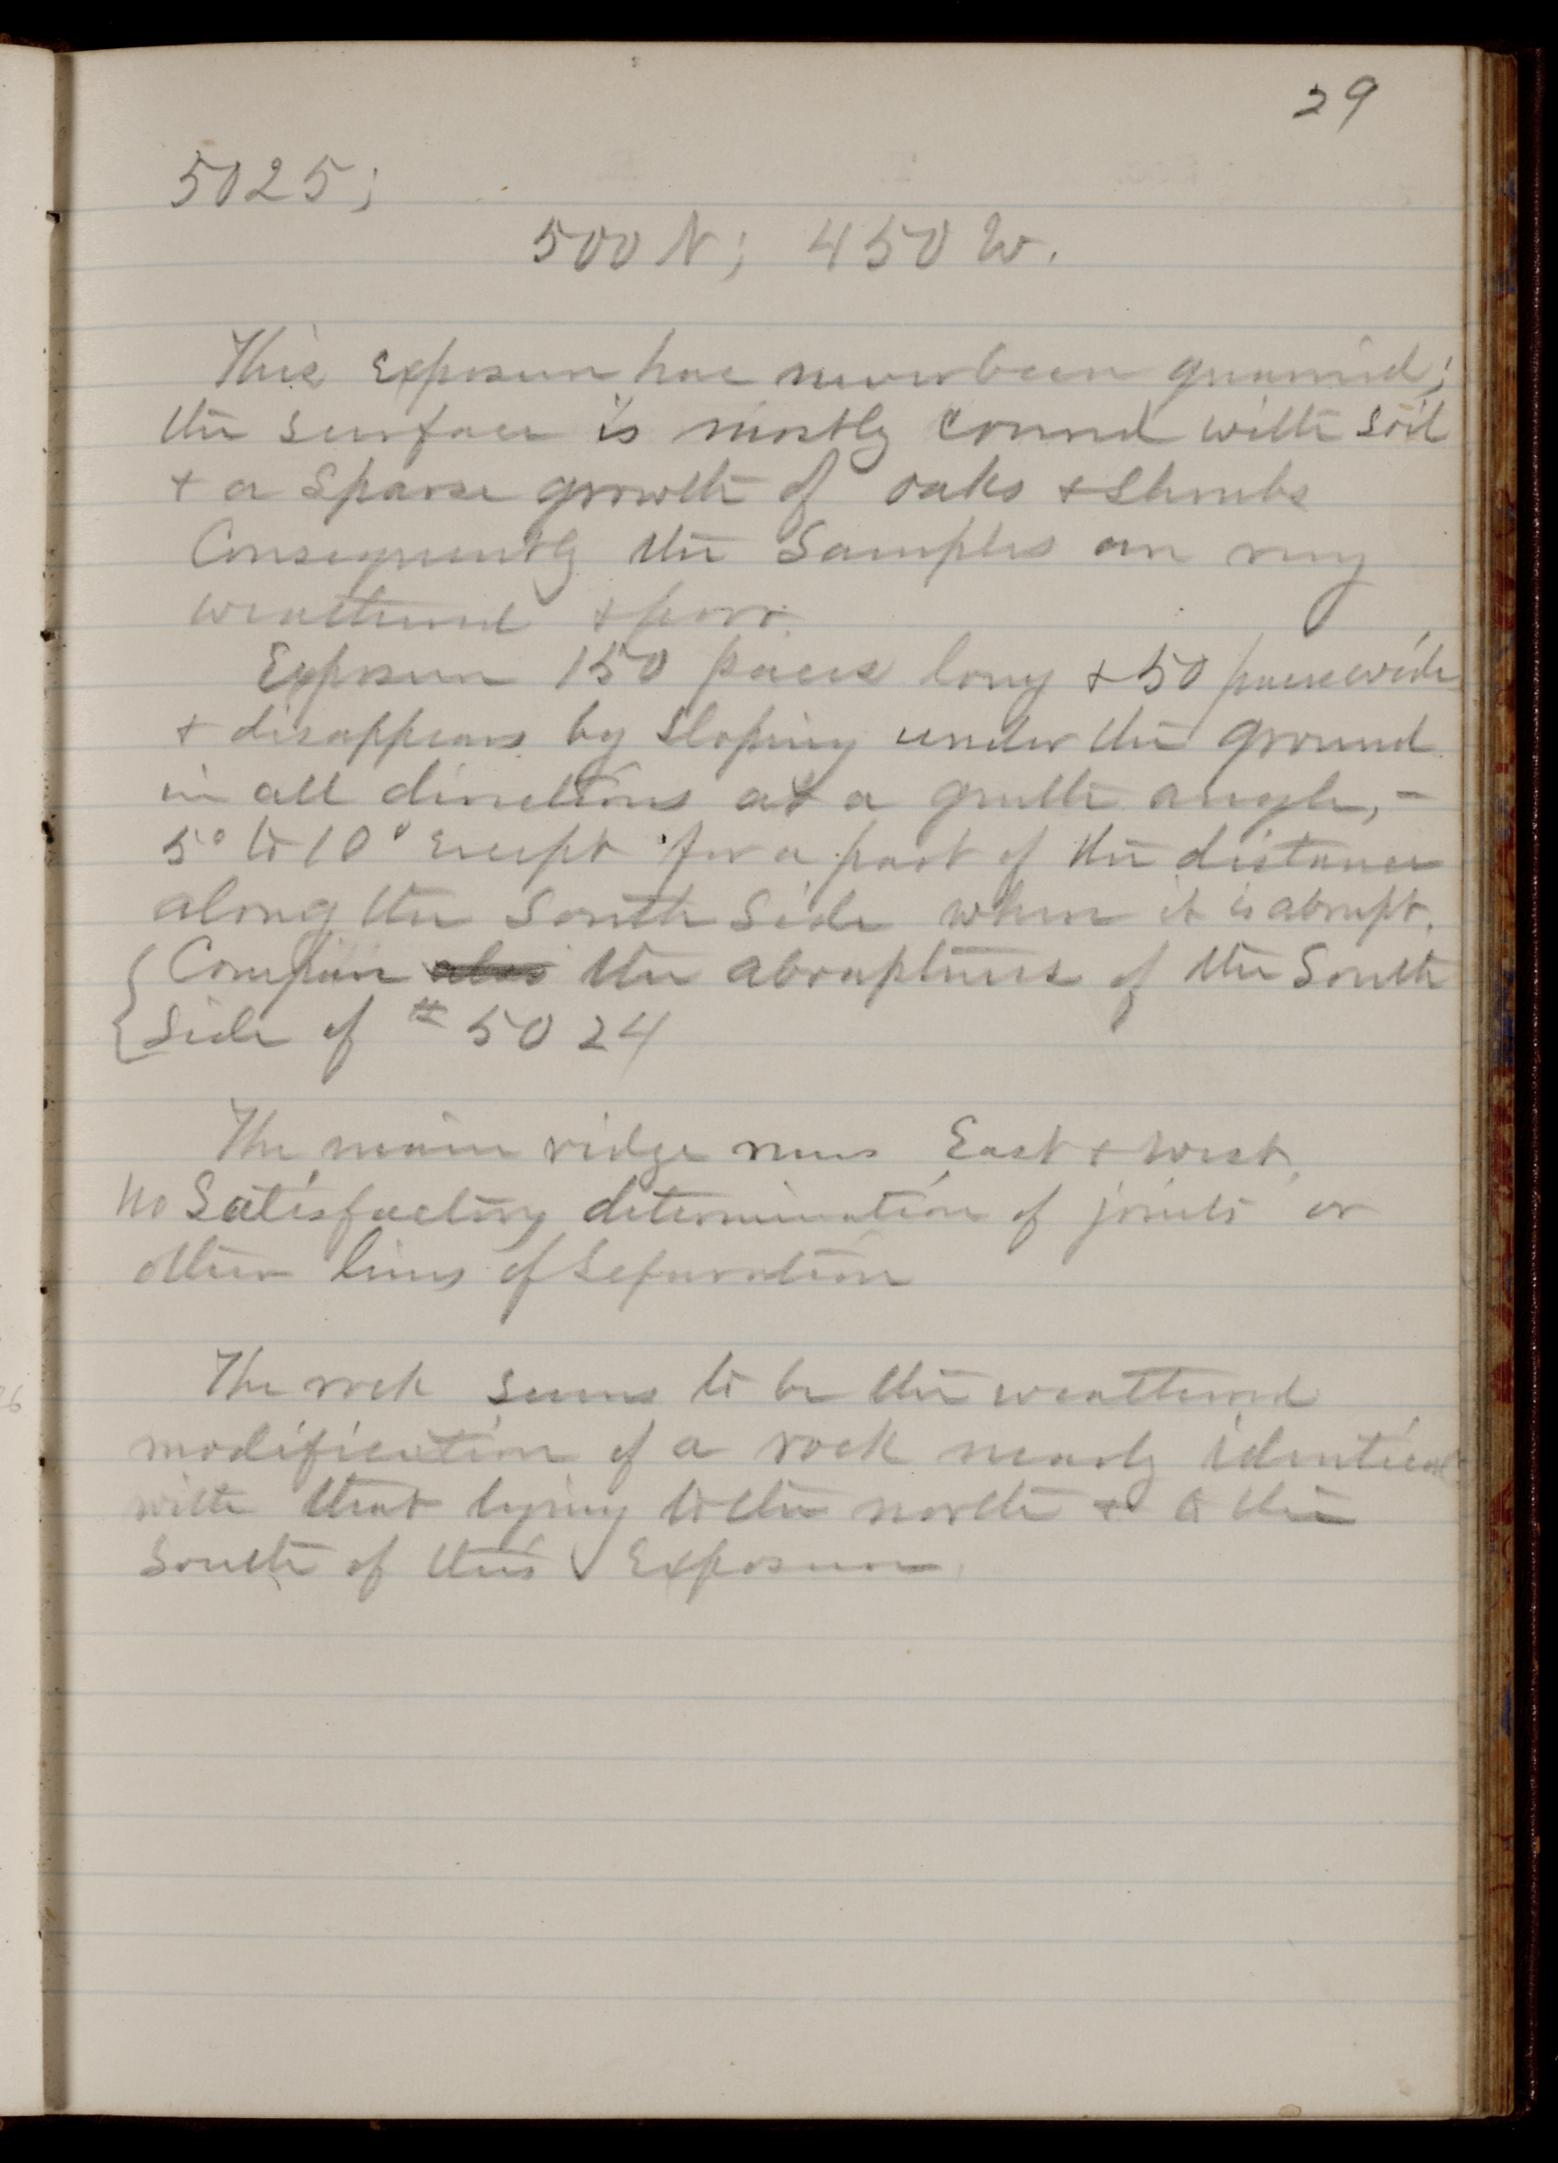 29
5025;
500 N; 450 W.
This Exposure has never been quarried;
the surface is mostly covered with soil
+ a sparse growth of oaks + shrubs
Consequently the samples are very
weathered + poor.
Exposure 150 paces long + 50 paces wide
+ disappears by sloping under the ground
in all directions at a gentle angle, -
5° to 10° except for a part of the distance
along the South Side where it is abrupt.
{ Compare also the abruptness of the South
Side of # 5024
The main ridge runs East + West.
No Satisfactory determination of joints or
other lines of Separation
The rock seems to be the weathered
modification of a rock nearly identical
with that lying to the north + to the
South of this Exposure.